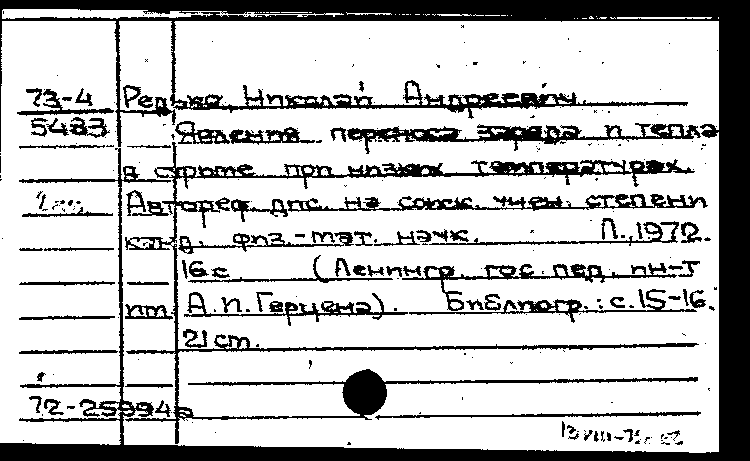 73-4 Редько, Николай Андреевич.
5483 Явления переноса заряда и тепла
в сурьме при низких температурах.
Автореф. дис. на соиск. учен. степени
канд. физ.-мат. наук. Л., 1972.
16 с. (Ленингр. гос. пед. ин-т
им. А.И. Герцена). Библиогр.: с. 15-16.
21 ст.
72-25994а